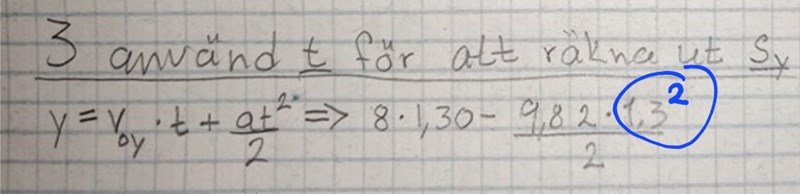 3 använd t för att räkna ut Sy
y = v₀y · t + at²/2 => 8 · 1,30 - 9,82 · 1,3²/2